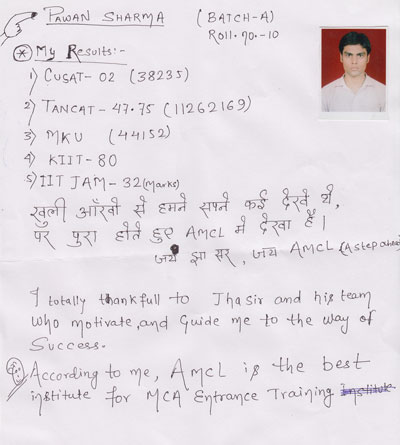 PAWAN SHARMA (BATCH-A)
Roll.no.-10
My Results:-
1) CUSAT-02 (38235)
2) TANCAT-47.75 (11262169)
3) MKU (44152)
4) KIIT-80
5) IIT JAM-32(Marks)
खुली आँखो से हमने सपने कई देखे थे,
पर पुरा होते हुए AMCL मे देखा है।
जय झा सर, जय AMCL (A step ahead)
I totally thankfull to Jha sir and his team
who motivate, and Guide me to the way of
Success.
According to me, AMCL is the best
institute for MCA Entrance Training institute